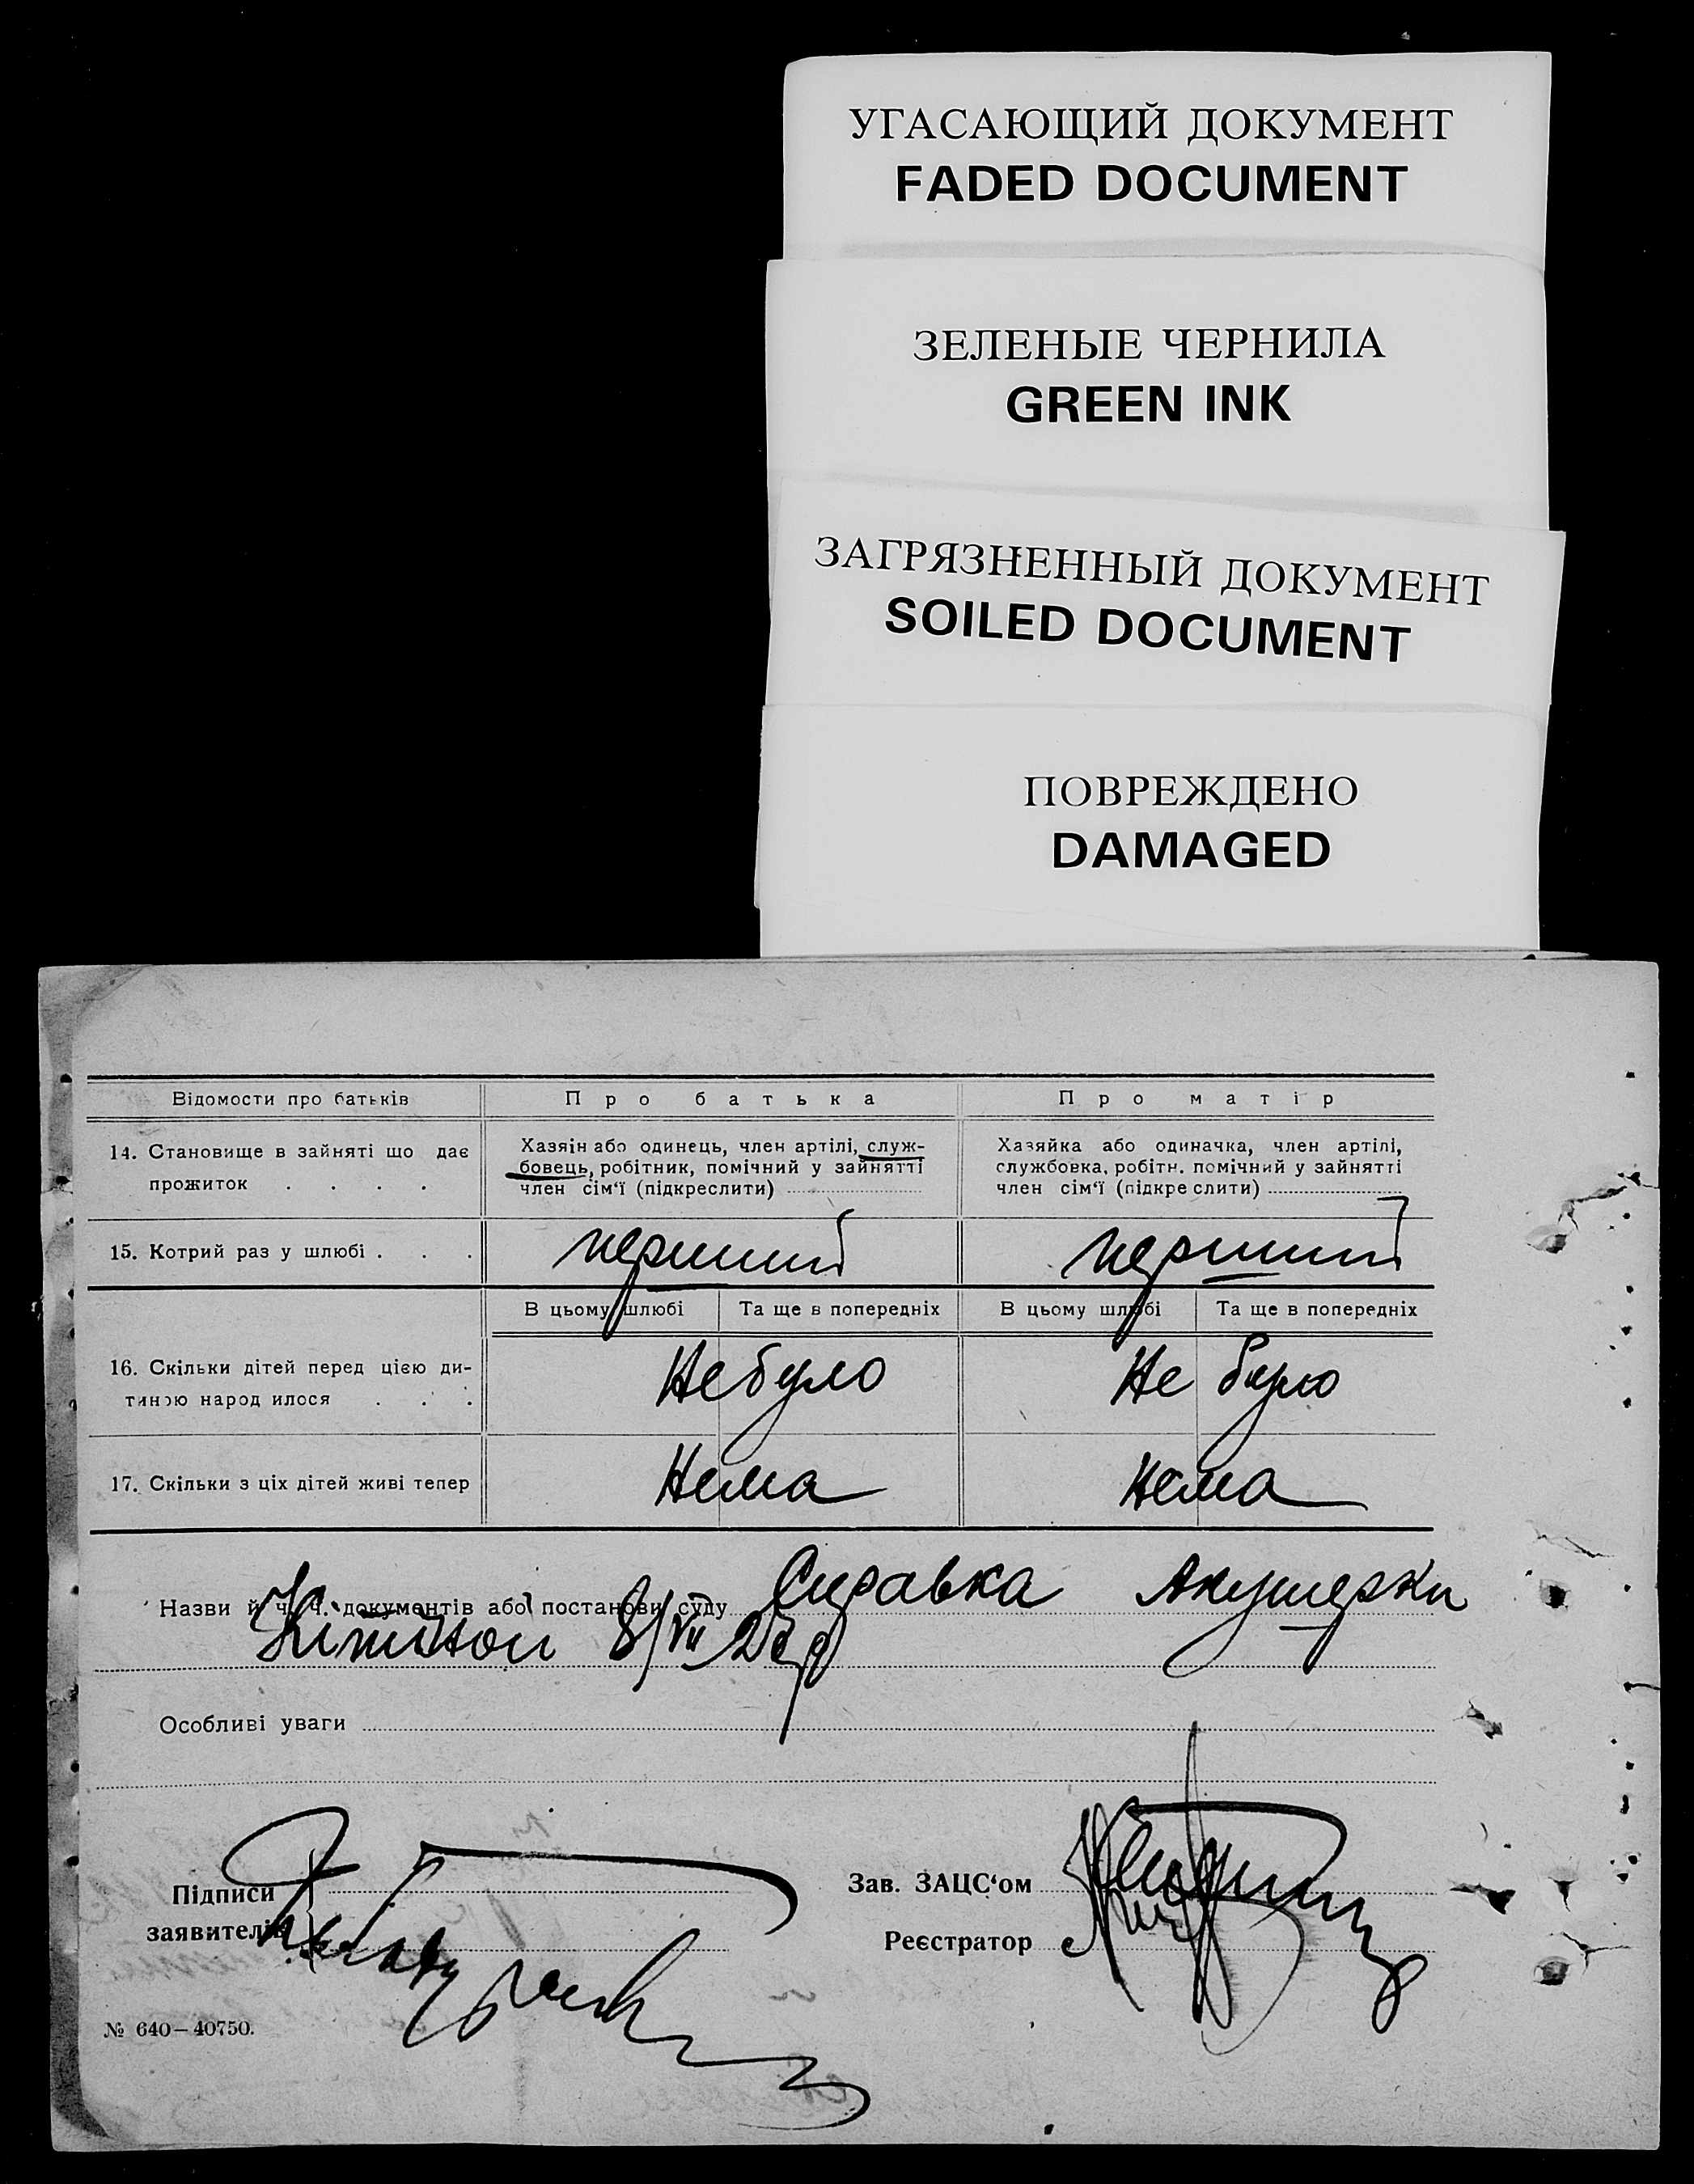 УГАСАЮЩИЙ ДОКУМЕНТ
FADED DOCUMENT
ЗЕЛЕНЫЕ ЧЕРНИЛА
GREEN INK
ЗАГРЯЗНЕННЫЙ ДОКУМЕНТ
SOILED DOCUMENT
ПОВРЕЖДЕНО
DAMAGED
Відомости про батьків Про батька Про матір
14. Становище в зайняті що дає
прожиток . . . .
Хазяїн або одинець, член артілі, служ-
бовець, робітник, помічний у зайнятті
член сім‘ї (підкреслити)
Хазяйка або одиначка, член артілі,
службовка, робітн. помічний у зайнятті
член сім‘ї (підкреслити)
15. Котрий раз у шлюбі . . . перший перший
В цьому шлюбі Та ще в попередніх В цьому шлюбі Та ще в попередніх
16. Скільки дітей перед цією ди-
тиною народилося . . .
Не було Не було
17. Скільки з ціх дітей живі тепер Нема Нема
Назви й ч. ч. документів або постанови суду Справка Акушерки
8/VII
Особливі уваги
Підписи
заявителів
Зав. ЗАЦС‘ом
Реєстратор
№ 640—40750.